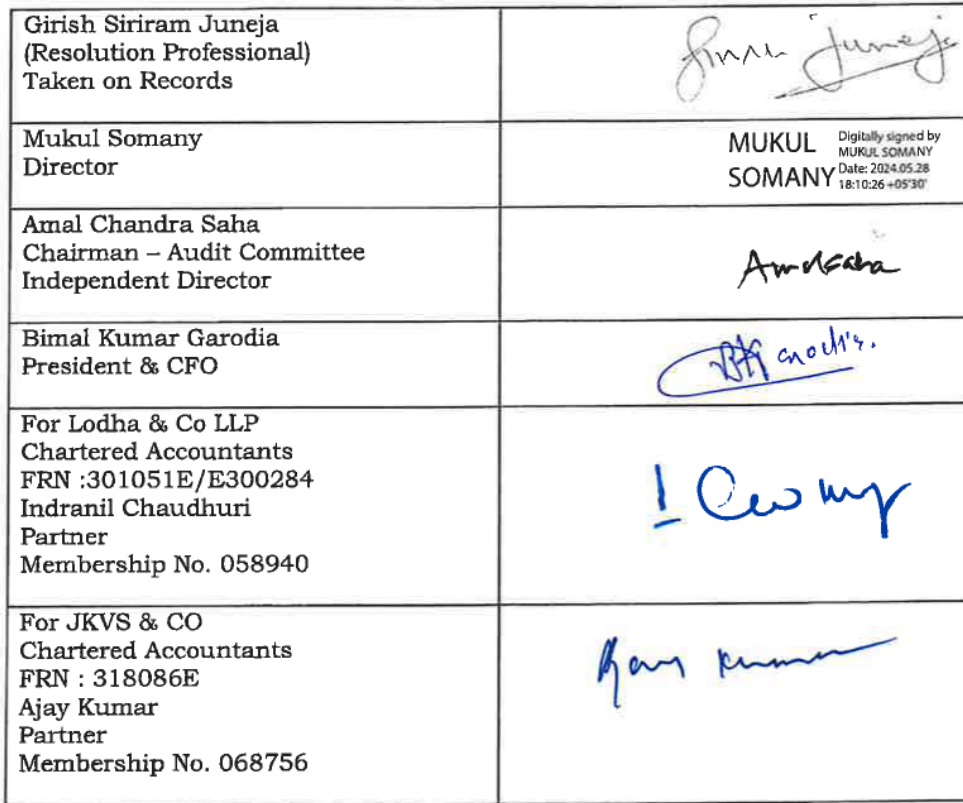 Girish Siriram Juneja
(Resolution Professional)
Taken on Records
Juneja
Mukul Somany
Director
MUKUL
SOMANY
Digitally signed by
MUKUL SOMANY
Date: 2024.05.28
18:10:26 +05'30'
Amal Chandra Saha
Chairman – Audit Committee
Independent Director
Bimal Kumar Garodia
President & CFO
For Lodha & Co LLP
Chartered Accountants
FRN :301051E/E300284
Indranil Chaudhuri
Partner
Membership No. 058940
For JKVS & CO
Chartered Accountants
FRN : 318086E
Ajay Kumar
Partner
Membership No. 068756
Kumar